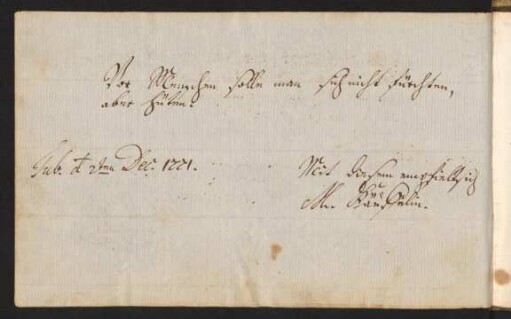 Vor Menschen solle man sich nicht fürchten,
aber hüten.
Tub. d 2ten Dec. 1771.
Mit diesem empfiehlt sich
M.